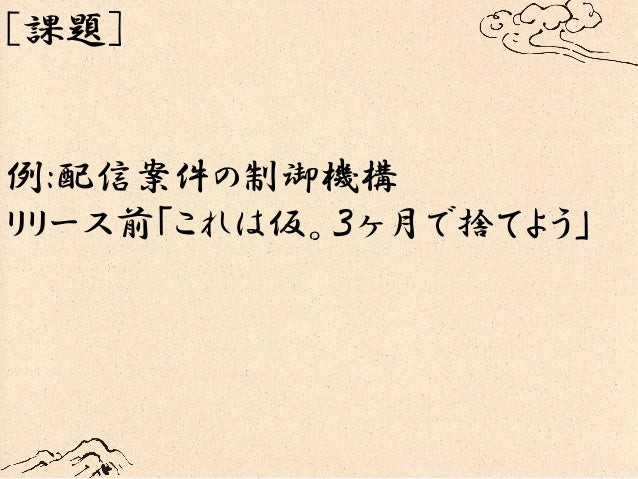 [課題]
例:配信案件の制御機構
リリース前「これは仮。3ヶ月で捨てよう」